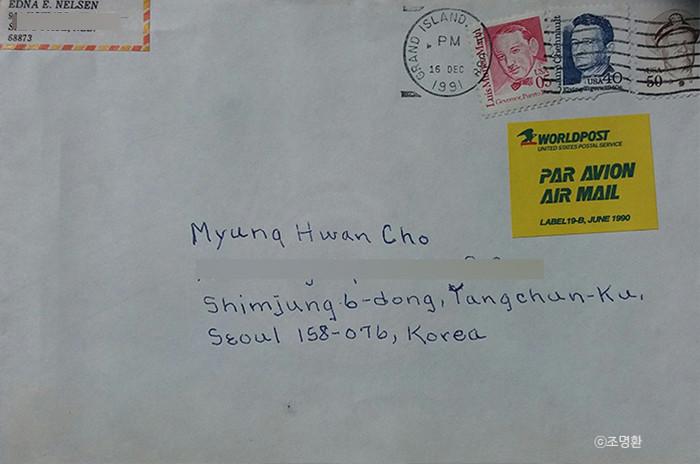 EDNA E. NELSEN
68873
GRAND ISLAND,
PM
16 DEC
1991
Luis Muñoz Marín
Governor, Puerto
05
USA 40
USA
50
WORLDPOST
UNITED STATES POSTAL SERVICE
PAR AVION
AIR MAIL
LABEL 19-B, JUNE 1990
Myung Hwan Cho
Shimjung 6-dong, Yangchun-Ku,
Seoul 158-076, Korea
©조명환